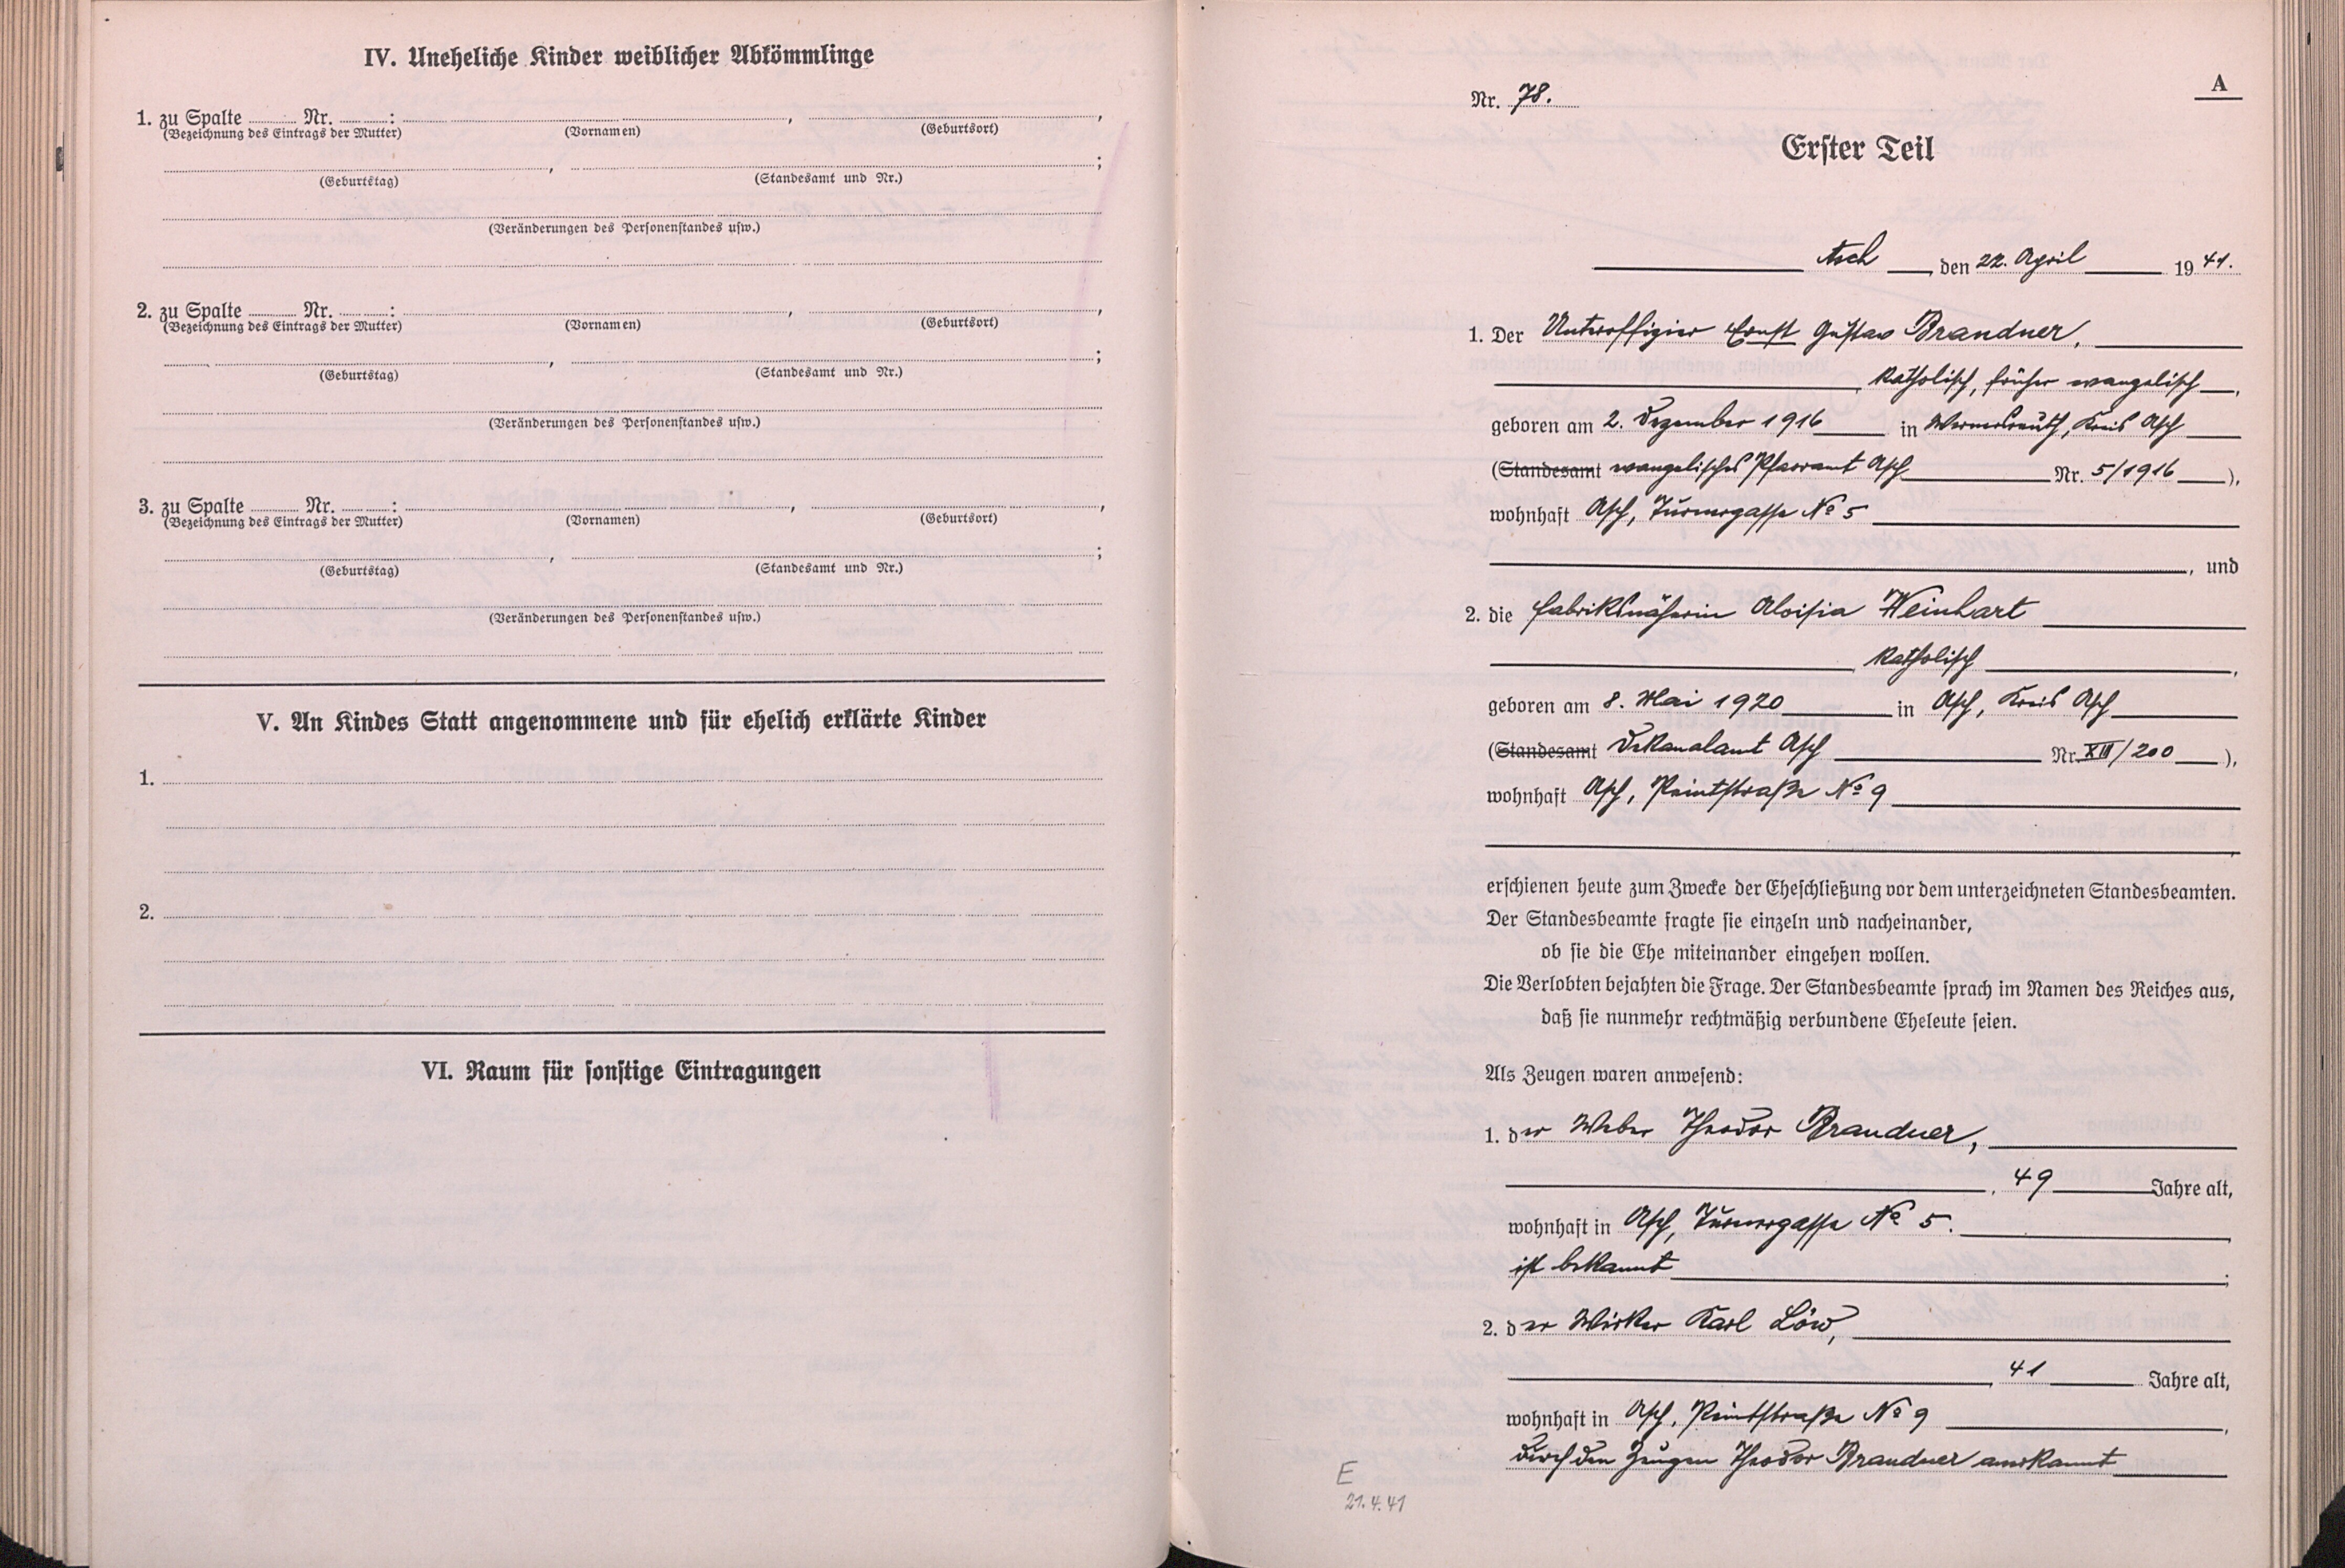 IV. Uneheliche Kinder weiblicher Abkömmlinge
1. zu Spalte ........ Nr. ........: , ,
(Bezeichnung des Eintrags der Mutter) (Vornamen) (Geburtsort)
, ;
(Geburtstag) (Standesamt und Nr.)
(Veränderungen des Personenstandes usw.)
2. zu Spalte ........ Nr. ........: , ,
(Bezeichnung des Eintrags der Mutter) (Vornamen) (Geburtsort)
, ;
(Geburtstag) (Standesamt und Nr.)
(Veränderungen des Personenstandes usw.)
3. zu Spalte ........ Nr. ........: , ,
(Bezeichnung des Eintrags der Mutter) (Vornamen) (Geburtsort)
, ;
(Geburtstag) (Standesamt und Nr.)
(Veränderungen des Personenstandes usw.)
V. An Kindes Statt angenommene und für ehelich erklärte Kinder
1.
2.
VI. Raum für sonstige Eintragungen
A
Nr. 78.
Erster Teil
Asch, den 22. April 1941.
1. Der Unteroffizier Ernst Gustav Brandner,
, katholisch, früher evangelisch,
geboren am 2. Dezember 1916 in Wernersreuth, Kreis Asch
(Standesamt evangelisches Pfarramt Asch Nr. 5/1916),
wohnhaft Asch, Turnergasse No 5
, und
2. die Fabriksnäherin Aloisia Weinhart
, katholisch,
geboren am 8. Mai 1920 in Asch, Kreis Asch
(Standesamt Dekanalamt Asch Nr. XIII/200),
wohnhaft Asch, Peintstraße No 9
,
erschienen heute zum Zwecke der Eheschließung vor dem unterzeichneten Standesbeamten.
Der Standesbeamte fragte sie einzeln und nacheinander,
ob sie die Ehe miteinander eingehen wollen.
Die Verlobten bejahten die Frage. Der Standesbeamte sprach im Namen des Reiches aus,
daß sie nunmehr rechtmäßig verbundene Eheleute seien.
Als Zeugen waren anwesend:
1. der Weber Theodor Brandner,
, 49 Jahre alt,
wohnhaft in Asch, Turnergasse No 5.
ist bekannt ;
2. der Wirker Karl Löw,
, 41 Jahre alt,
wohnhaft in Asch, Peintstraße No 9,
durch den Zeugen Theodor Brandner anerkannt
E
21.4.41